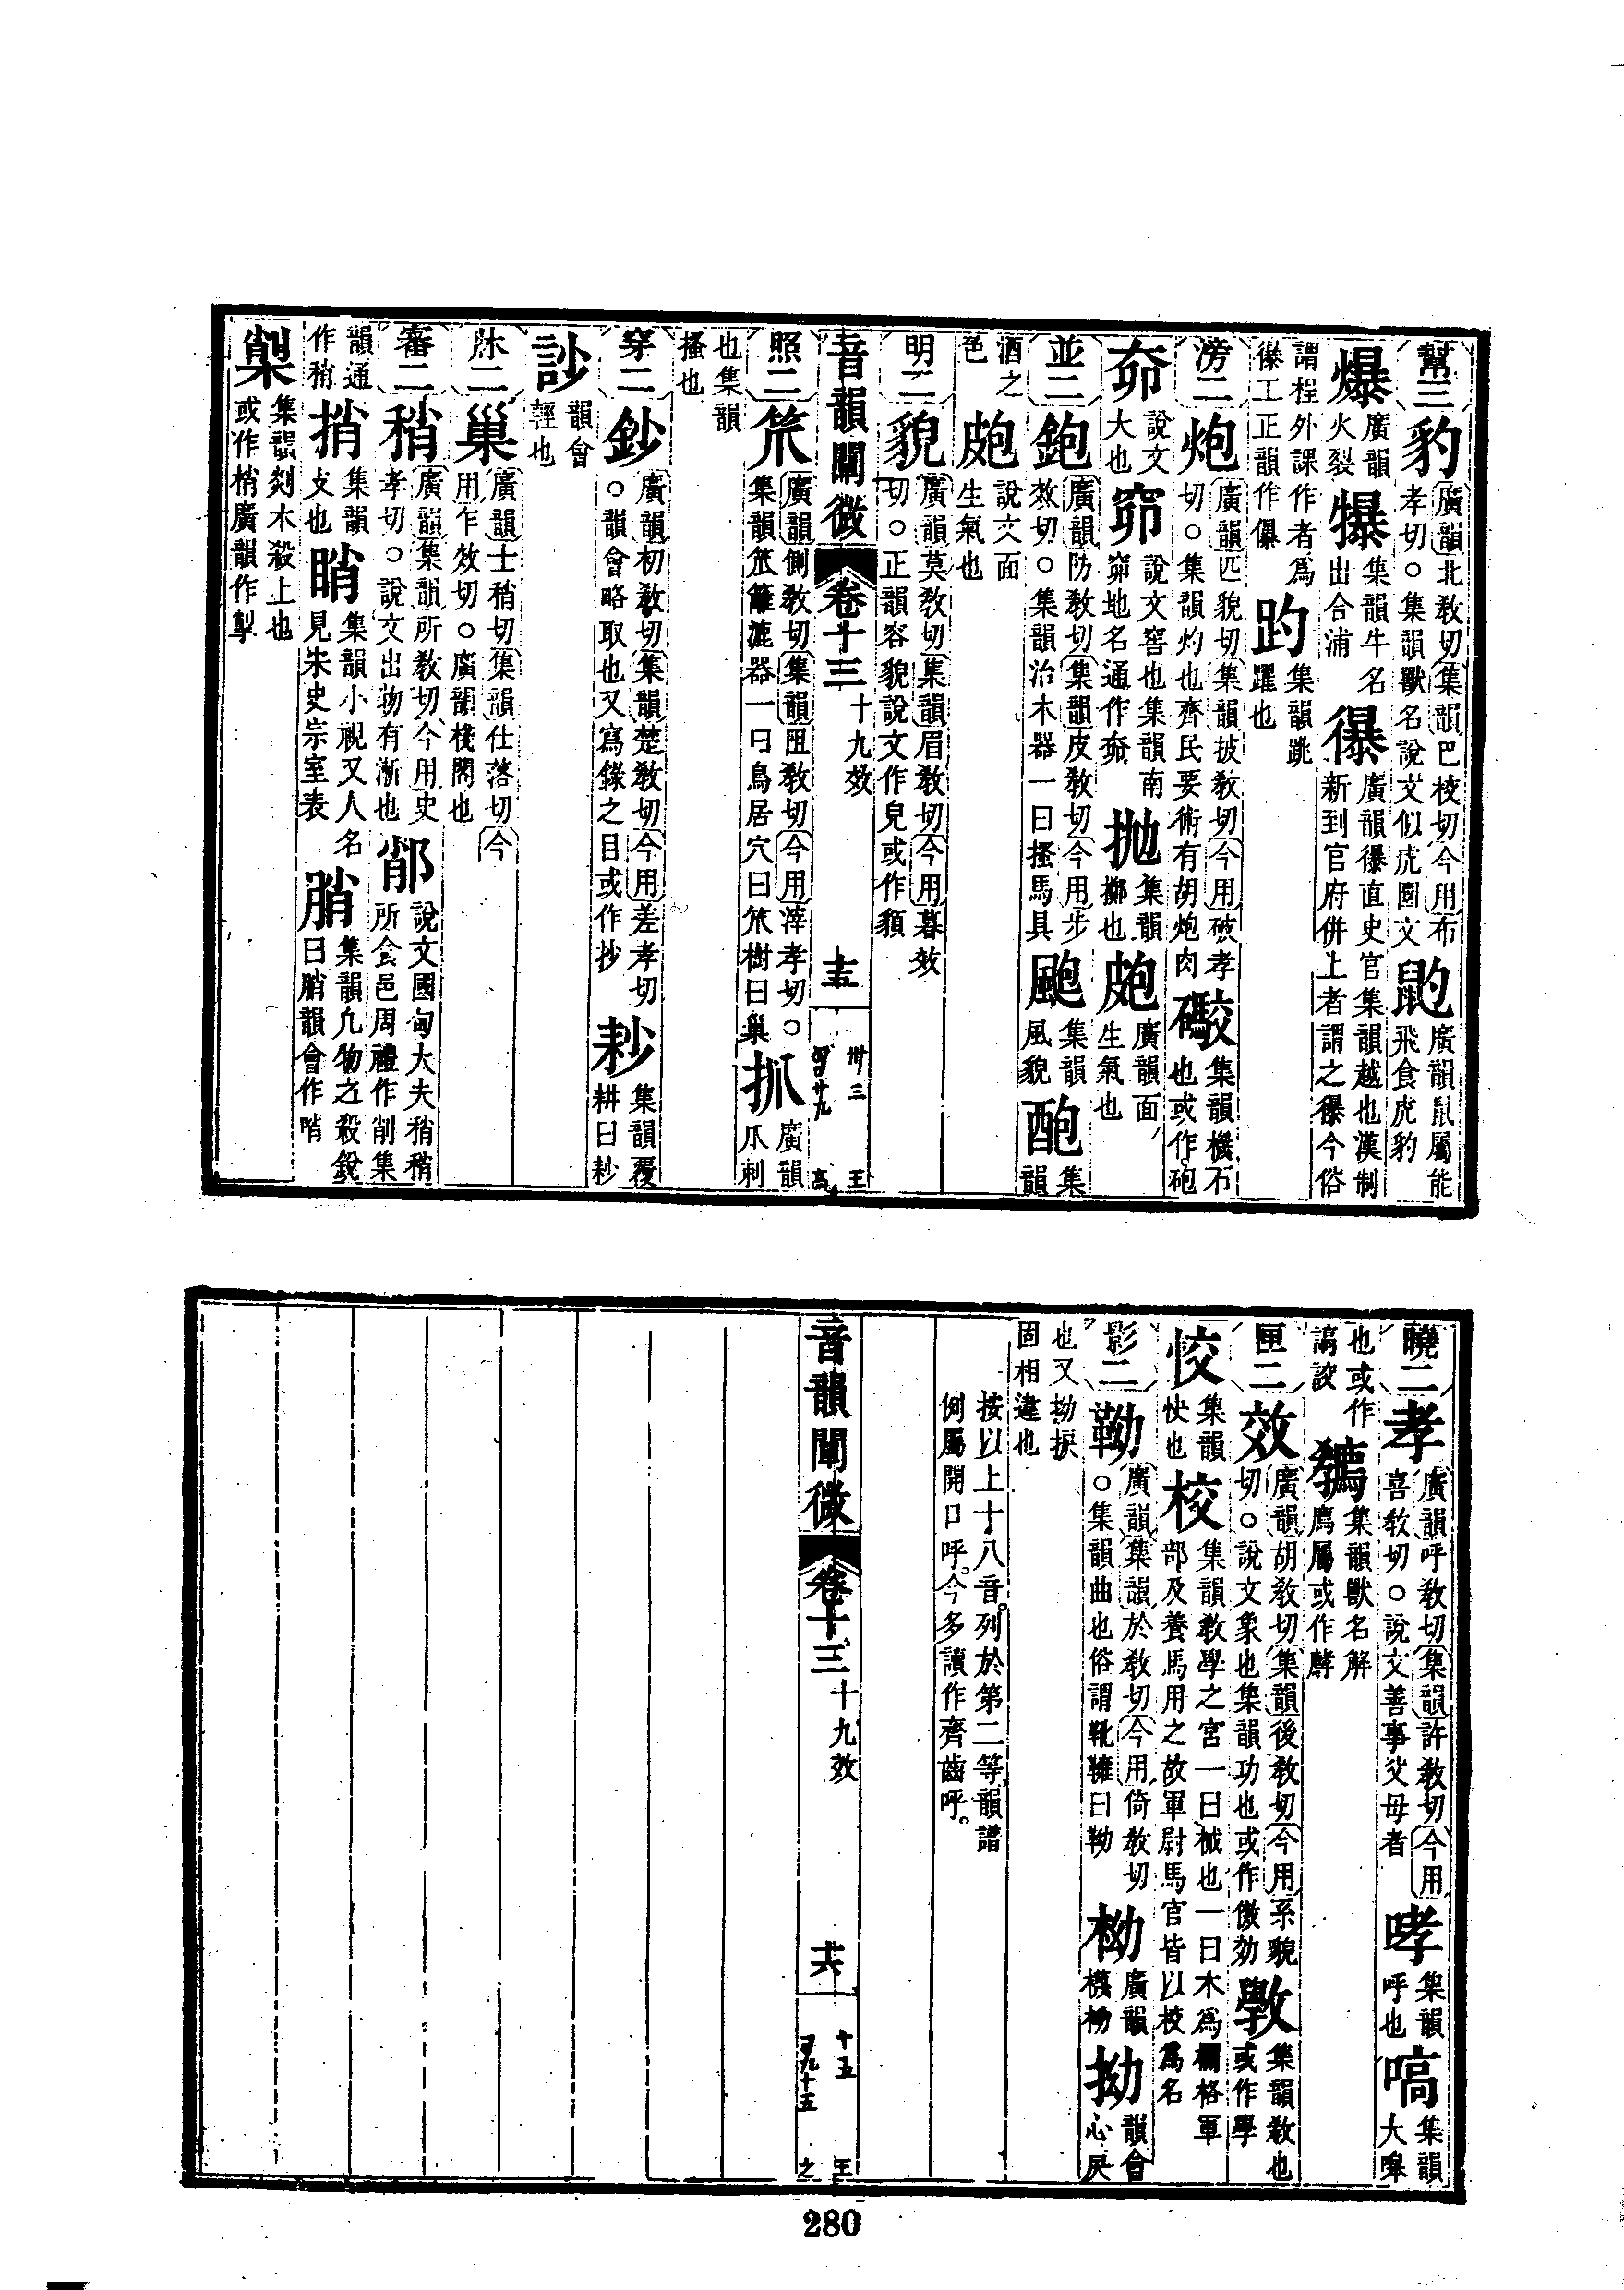 幫二豹廣韻北教切集韻巴校切今用布孝切○集韻獸名說文似虎圜文䶂廣韻鼠屬能飛食虎豹
爆廣韻火裂犦集韻牛名出合浦㬥廣韻㬥直史官集韻越也漢制新到官府併上者謂之㬥今俗
謂程外課作者爲㬥工正韻作儤趵集韻跳躍也
滂二炮廣韻匹貌切集韻披教切今用破孝切○集韻灼也齊民要術有胡炮肉礮集韻機石也或作砲
奅說文大也窌說文窖也集韻南窌地名通作奅拋集韻擲也皰廣韻面生氣也
並二鉋廣韻防教切集韻皮教切今用步效切○集韻治木器一曰搔馬具颮集韻風貌䩝集韻
酒之色皰說文面生氣也
明二貌廣韻莫教切集韻眉教切今用暮效切○正韻容貌說文作皃或作䫉
音韻闡微 卷十三 十九效 十五
照二笊廣韻側教切集韻阻教切今用滓孝切○集韻笊籬漉器一曰鳥居穴曰笊樹曰巢抓廣韻爪刺
也集韻搔也
穿二鈔廣韻初教切集韻楚教切今用差孝切○韻會略取也又寫錄之目或作抄耖集韻覆耕曰耖
訬韻會輕也
牀二巢廣韻士稍切集韻仕落切今用乍效切○廣韻棧閣也
審二稍廣韻集韻所教切今用史孝切○說文出物有漸也䣯說文國甸大夫稍稍所食邑周禮作削集
韻通作稍捎集韻攴也睄集韻小視又人名見朱史宗室表䏴集韻凡物之殺銳曰䏴韻會作哨
㮶集韻剡木殺上也或作梢廣韻作掣
曉二孝廣韻呼教切集韻許教切今用喜教切○說文善事父母者哮集韻呼也嗃集韻大嘷
也或作謞詨㹲集韻獸名解廌屬或作䴥
匣二效廣韻胡教切集韻後教切今用系貌切○說文象也集韻功也或作傚効斆集韻教也或作學
恔集韻快也校集韻教學之宮一曰械也一曰木爲欄格軍部及養馬用之故軍尉馬官皆以校爲名
影二靿廣韻集韻於教切今用倚教切○集韻曲也俗謂靴䩺曰靿㭓廣韻㭓拗韻會心戾
也又拗捩固相違也
按以上十八音列於第二等韻譜
例屬開口呼今多讀作齊齒呼
音韻闡微 卷十三 十九效 十六
280